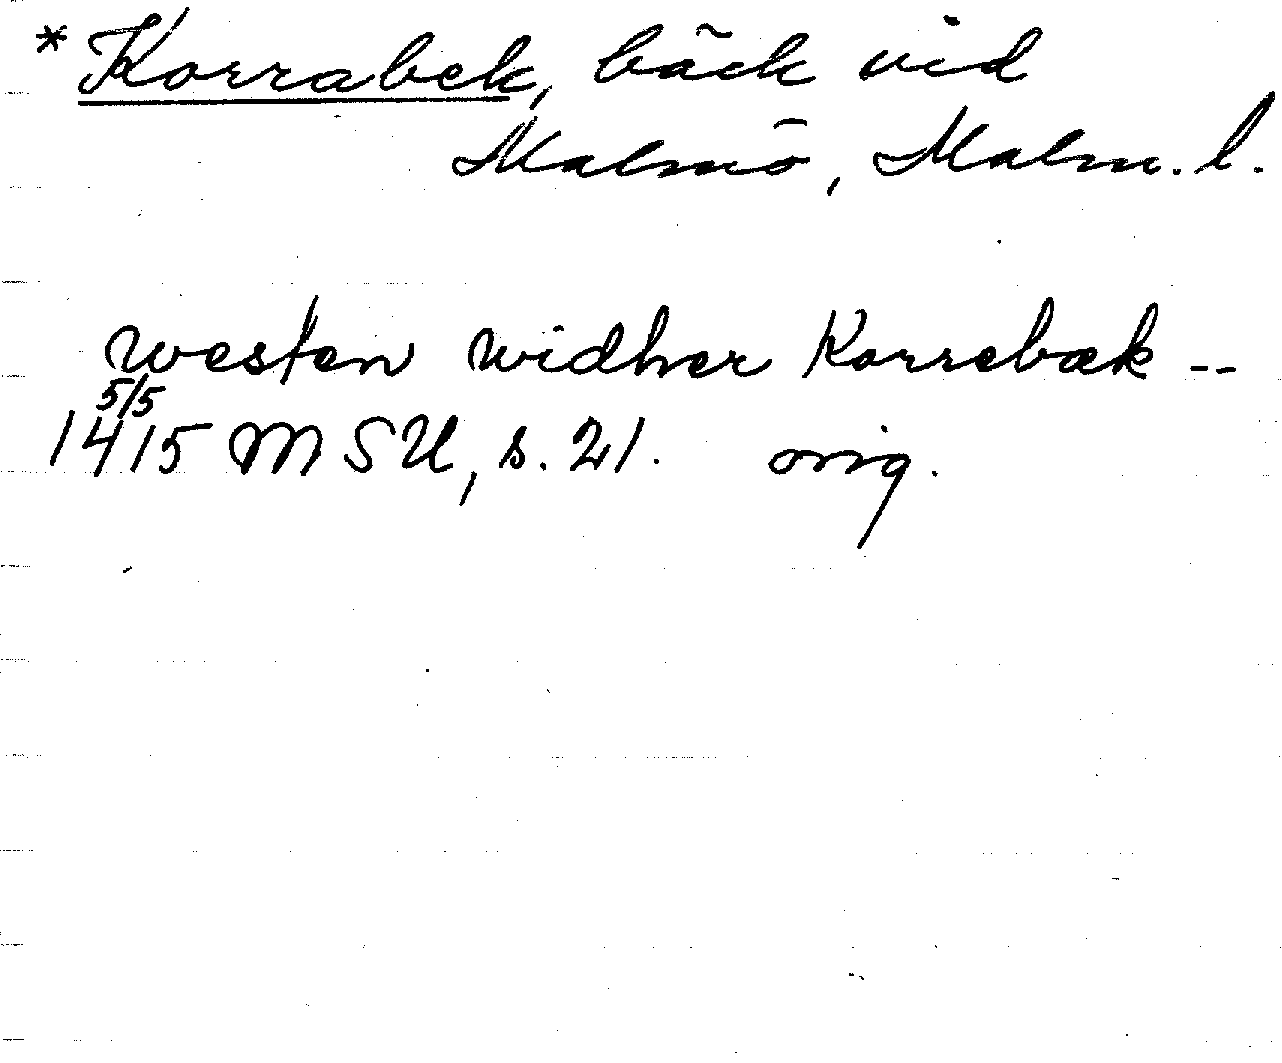 * Korrabek, bäck vid
Malmö, Malm. l.
westen widher Korrebæk --
5/5
1415 MSU, s. 21. orig.